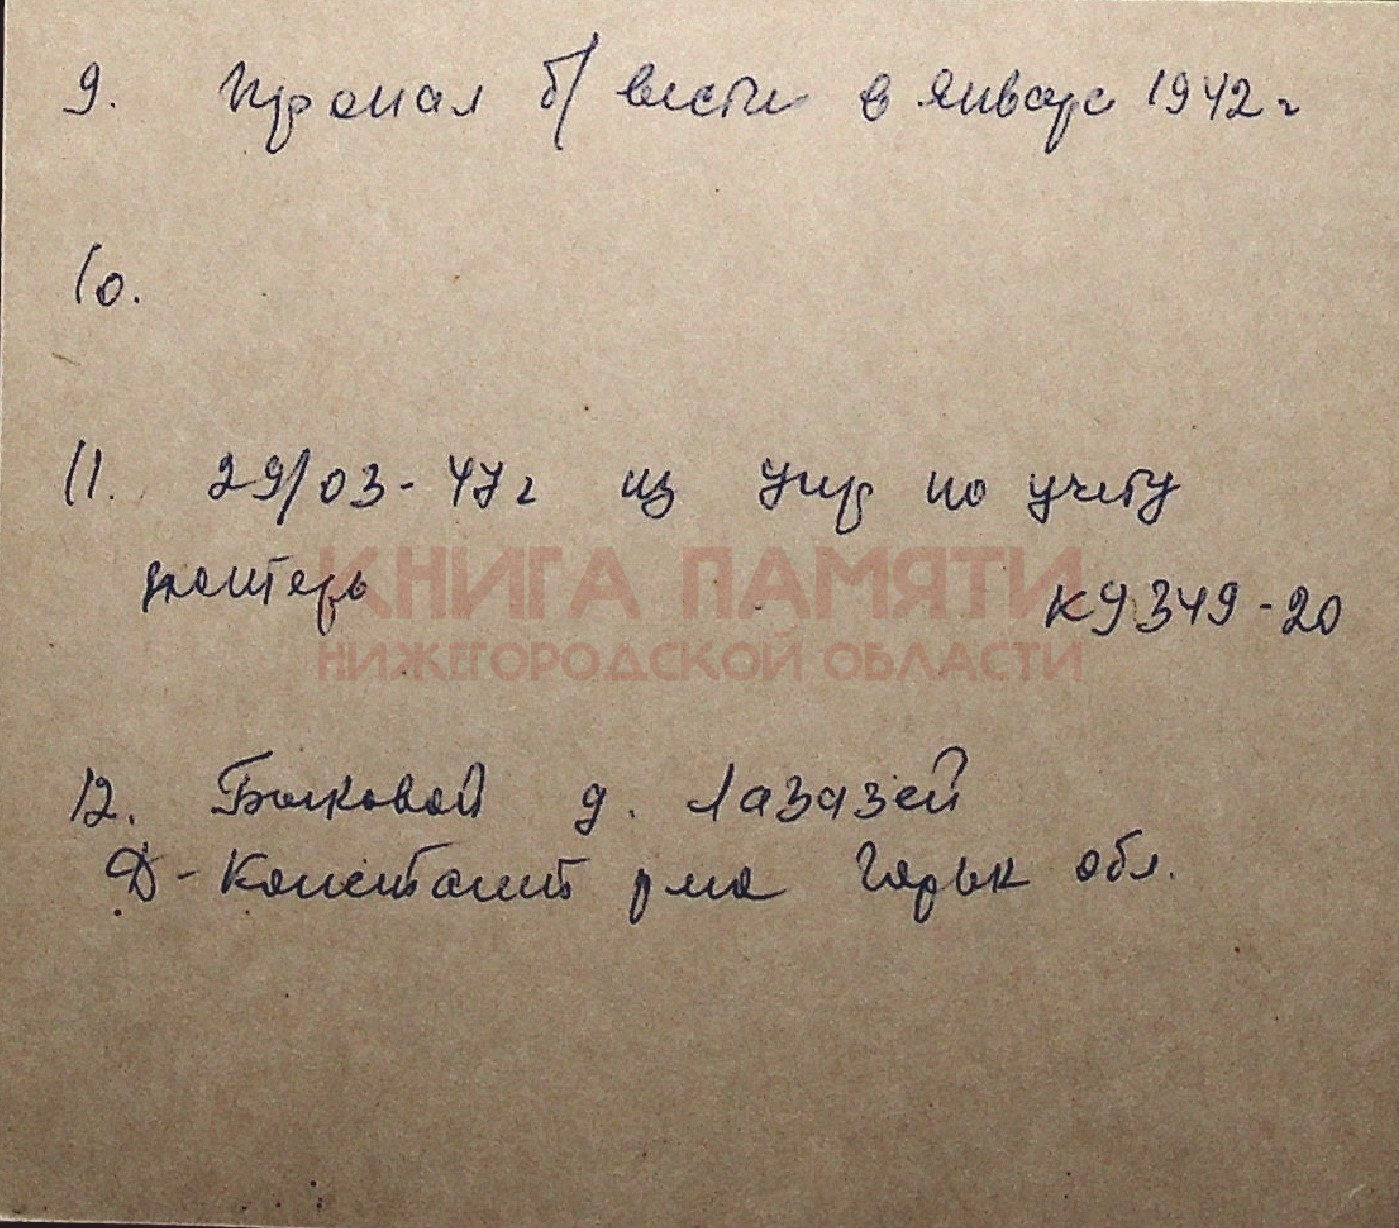 9. Пропал б/ вести в январе 1942 г
10.
11. 29/03-47 г из Упр по учету
потерь
КНИГА ПАМЯТИ
К 9349-20
НИЖЕГОРОДСКОЙ ОБЛАСТИ
12. Быковой д. Лазазей
Д-Констант р-на Горьк обл.